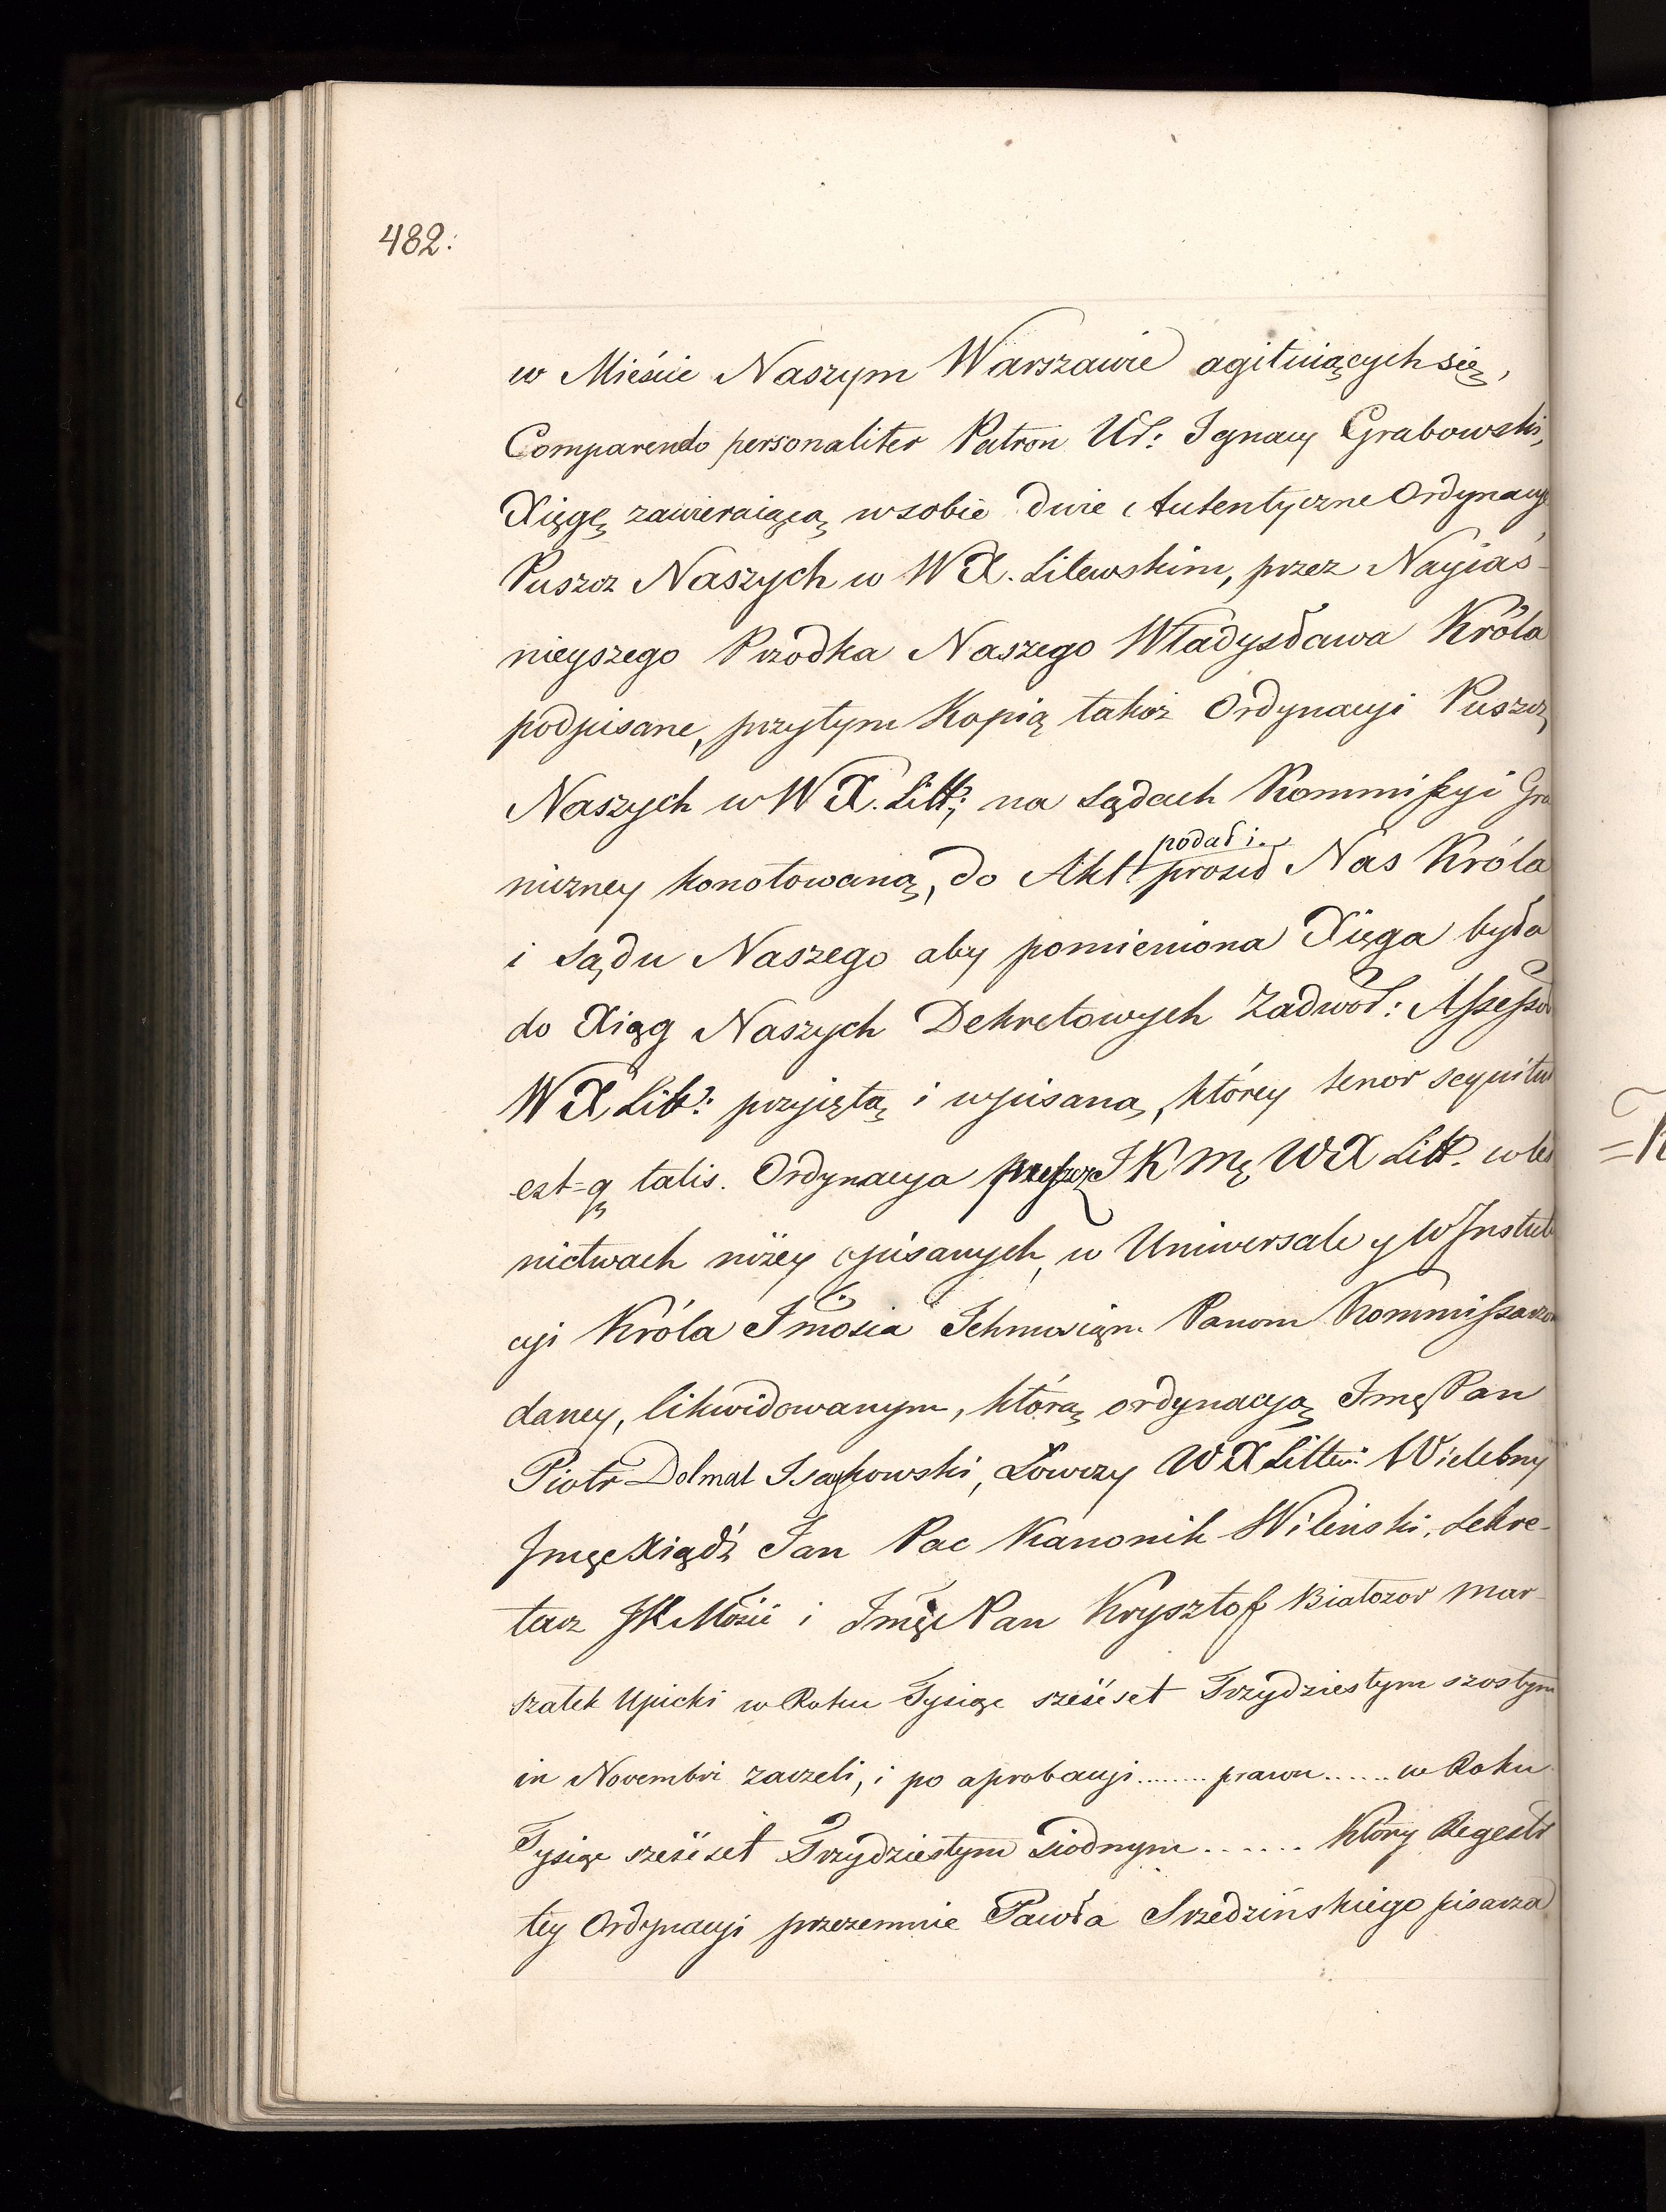 482:
w Mieście Naszym Warszawie agituiących się,
Comparendo personaliter Patron Ur: Ignacy Grabowski,
Xięgę zawieraiącą w sobie dwie Autentyczne Ordynacye
Puszcz Naszych w W X. Litewskim, przez Nayiaś-
nieyszego Przodka Naszego Władysława Króla
podpisane, przytym Kopią takoż Ordynacyi Puszcz
Naszych w W X. Litt: na Sądach Kommissyi Gra
niczney konotowaną, do Akt podał i prosił Nas Króla
i Sądu Naszego aby pomieniona Xięga była
do Xiąg Naszych Dekretowych Zadwor: Assessor
W X Litt: przyiętą i wpisaną, którey tenor sequitur
est=q talis. Ordynacya Puszcz J K Mę W X Litt. w leś
nictwach niżey opisanych, w Uniwersale y w Instruk
cyi Króla Jmości Ichmościom Panom Kommissarzom
daney, likwidowanym, którą ordynacyą Jmę Pan
Piotr Dolmat Isaykowski, Łowczy W X Littew: Wielebny
Jmęc Xiądz Jan Pac Kanonik Wileński, Sekre-
tarz JK Mości i Jmęc Pan Krysztof Białozor Mar-
szałek Upicki w Roku Tysiąc sześćset Trzydziestym szostym
in Novembri zaczeli, i po aprobacyi ........ prawu ...... w Roku
Tysiąc sześćset Trzydziestym Siodmym ....... który Regestr
tey Ordynacyi przezemnie Pawła Srzedzińskiego pisarza